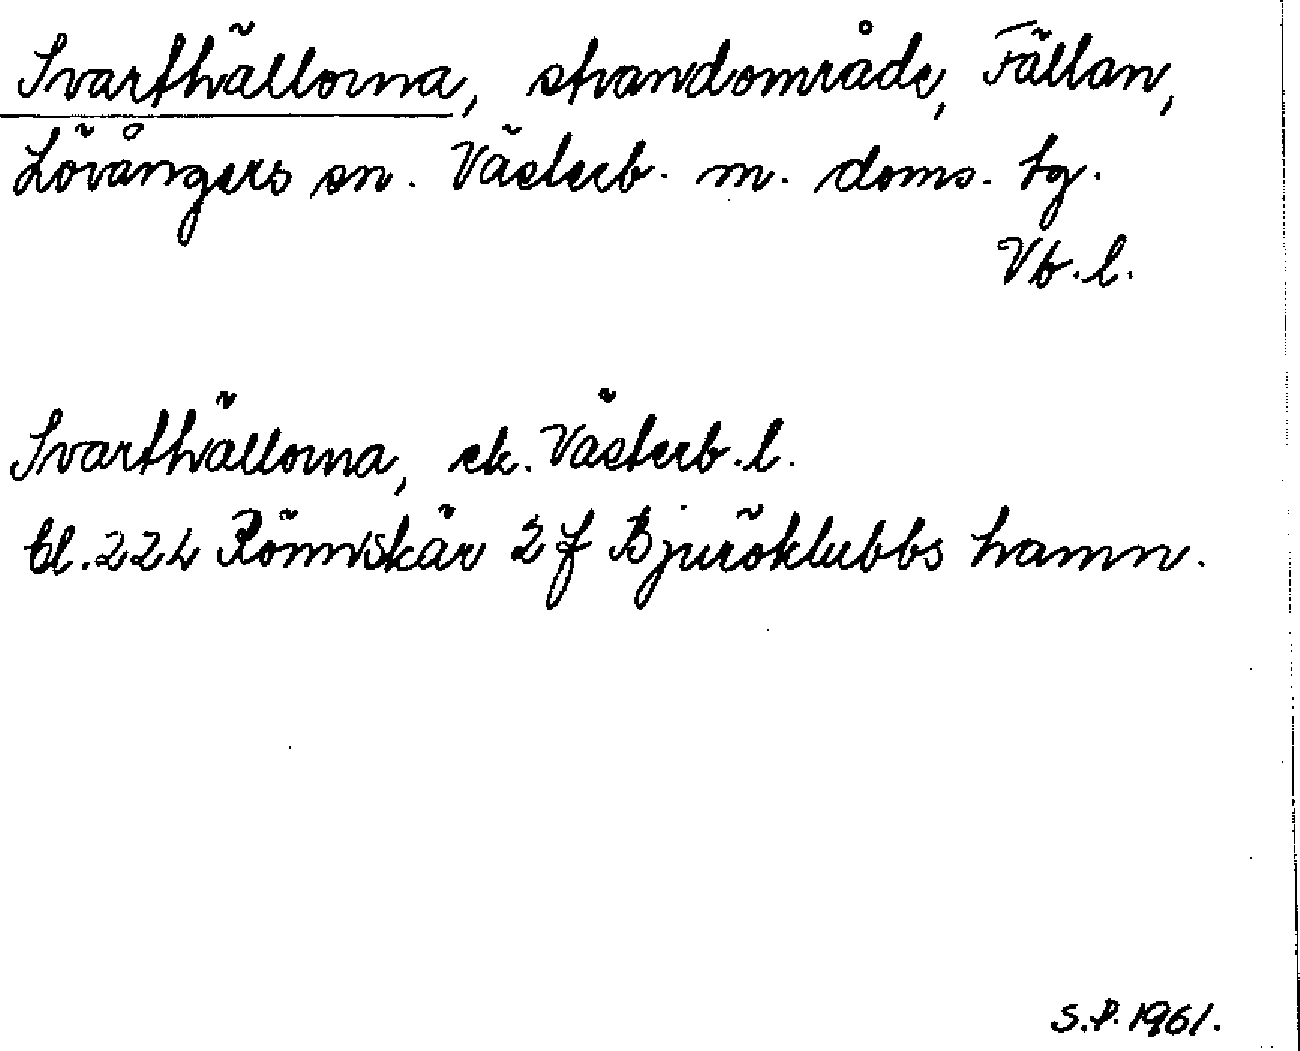 Svarthällorna, strandområde, Fällan,
Lövångers sn. Västerb. m. doms. tg.
Vb. l.
Svarthällorna, ek. Västerb. l.
bl. 22L Rönnskär 2 f Bjuröklubbs hamn.
S.P. 1961.